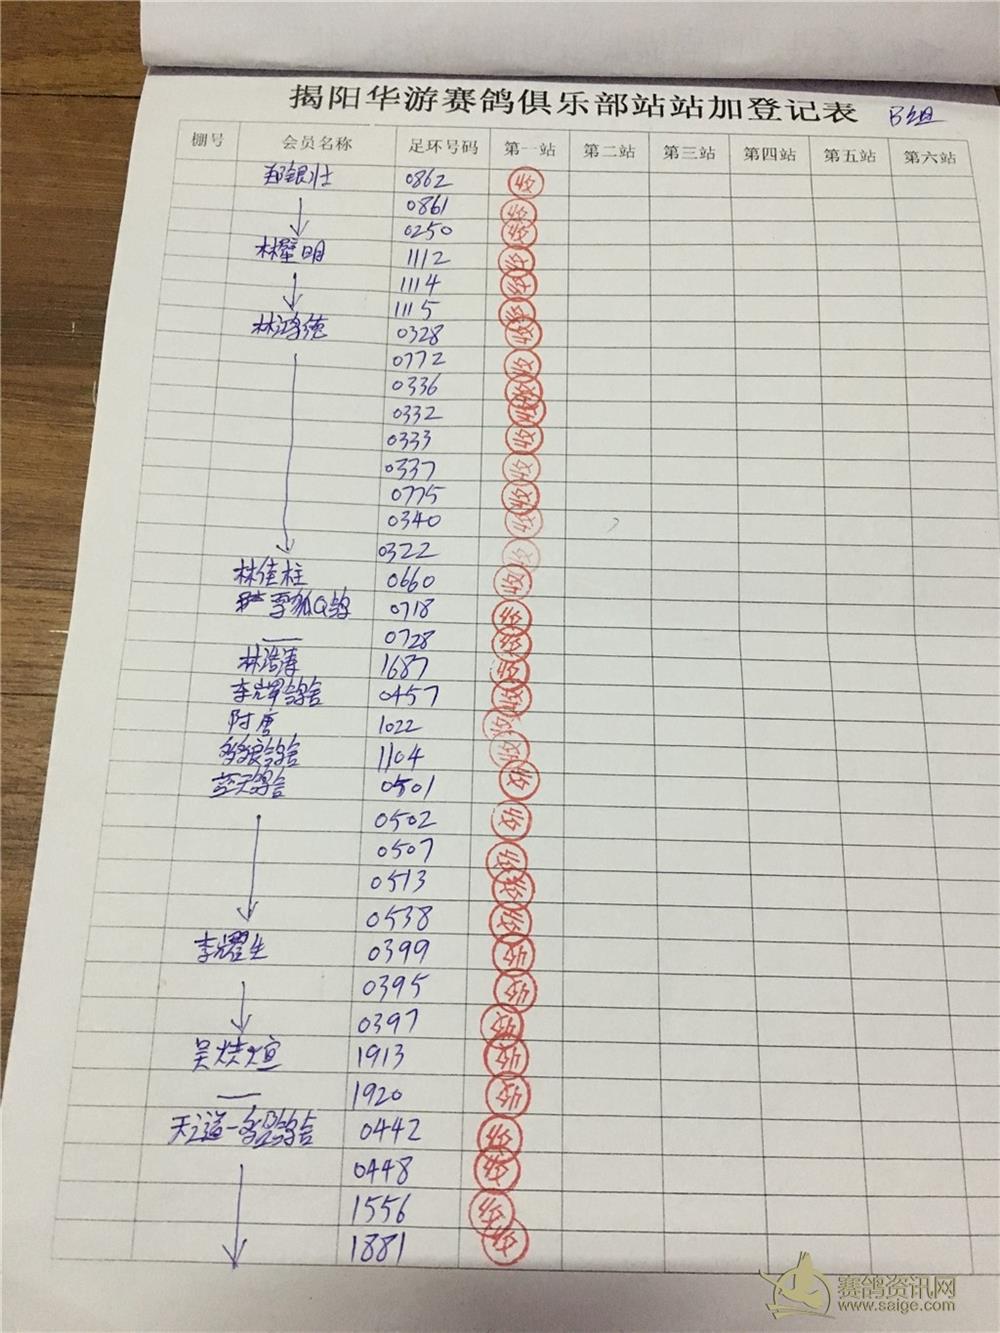 揭阳华游赛鸽俱乐部站站加登记表 B组
棚号 会员名称 足环号码 第一站 第二站 第三站 第四站 第五站 第六站
郑银壮 0862 收
0861 收
0250 收
林壁明 1112 收
1114 收
1115 收
林鸿德 0328 收
0772 收
0336 收
0332 收
0333 收
0337 收
0775 收
0340 收
0322 收
林佳柱 0660 收
0718 收
0728 收
林浩涛 1687 收
李辉鸽舍 0457 收
1022 收
鸽舍 1104 收
蓝天鸽舍 0501 收
0502 收
0507 收
0513 收
0538 收
李耀生 0399 收
0395 收
0397 收
吴 1913 收
1920 收
天之道一 鸽舍 0442 收
0448 收
1556 收
1881 收
赛鸽资讯网
www.saige.com